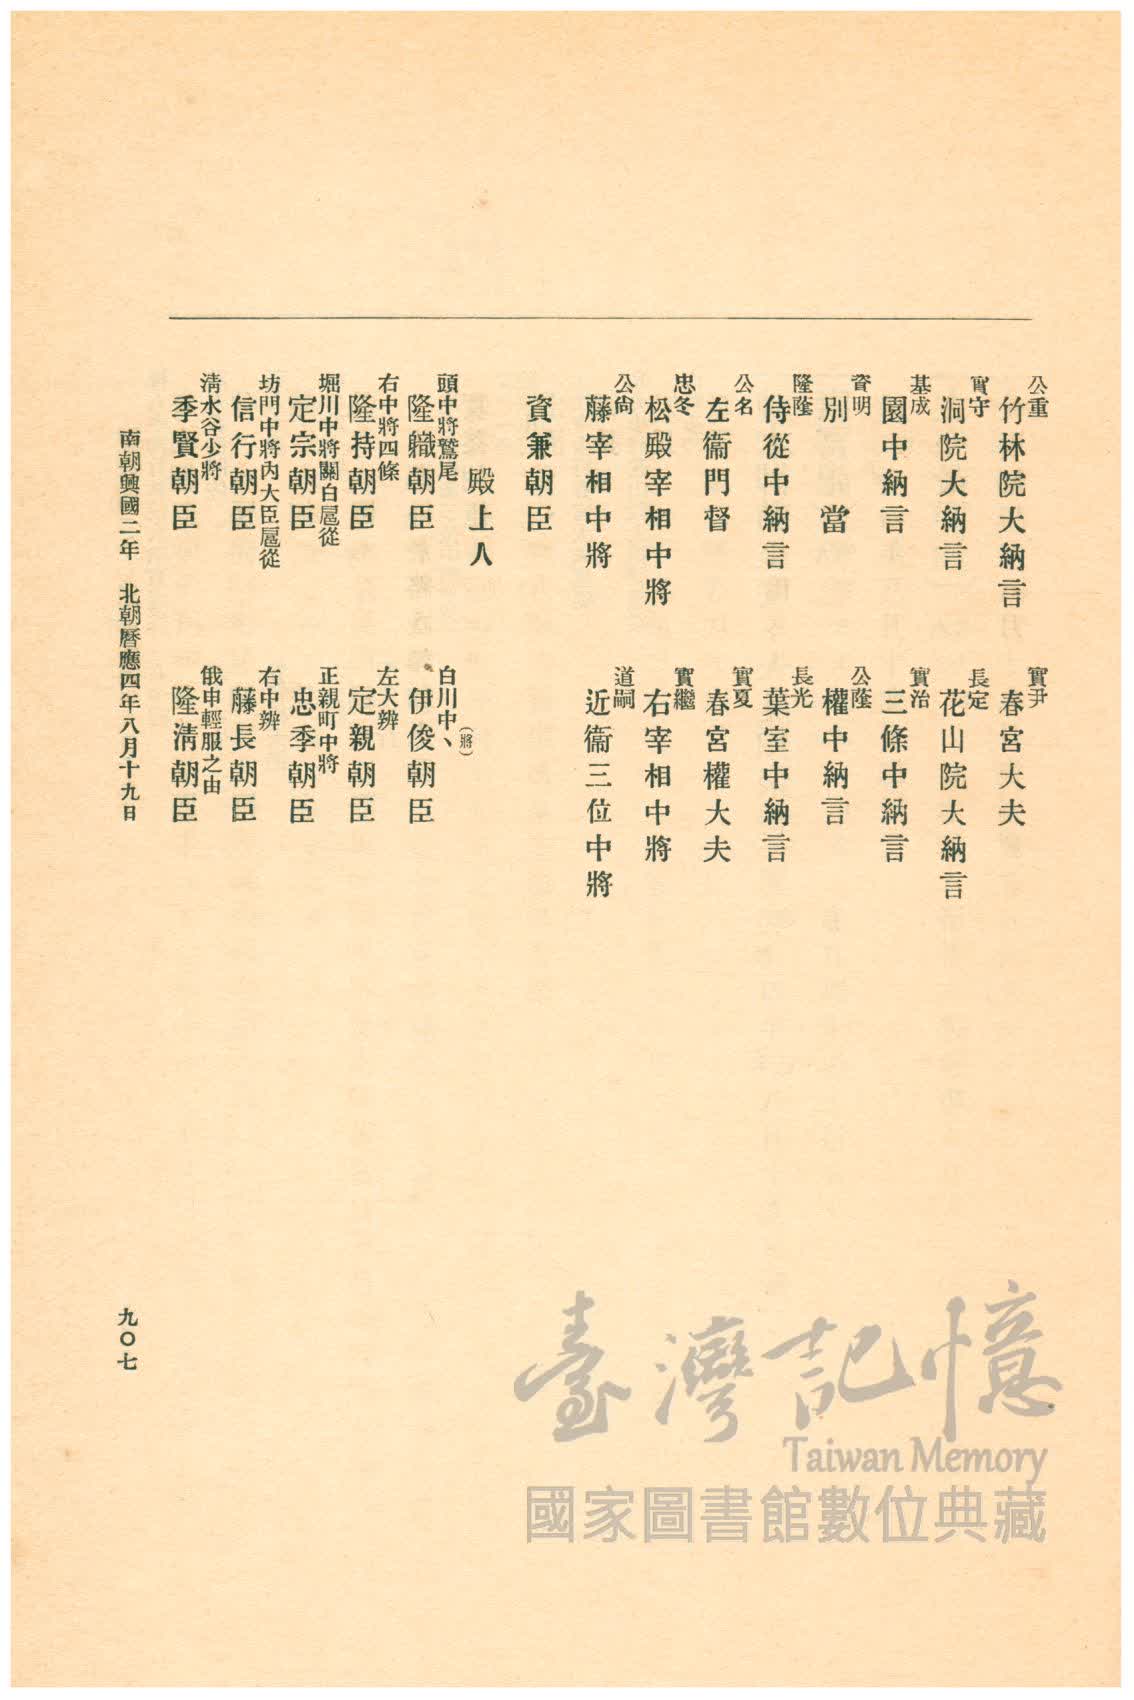 公重
竹林院大納言
實尹
春宮大夫
實守
洞院大納言
長定
花山院大納言
基成
園中納言
實治
三條中納言
資明
別當
公蔭
權中納言
隆蔭
侍從中納言
長光
葉室中納言
公名
左衞門督
實夏
春宮權大夫
忠冬
松殿宰相中將
實繼
右宰相中將
公尙
藤宰相中將
道嗣
近衞三位中將
資兼朝臣
殿上人
頭中將鷲尾
隆職朝臣
白川中、(將)
伊俊朝臣
右中將四條
隆持朝臣
左大辨
定親朝臣
堀川中將關白扈從
定宗朝臣
正親町中將
忠季朝臣
坊門中將內大臣扈從
信行朝臣
右中辨
藤長朝臣
淸水谷少將
季賢朝臣
俄申輕服之由
隆淸朝臣
南朝興國二年 北朝曆應四年八月十九日
九〇七
臺灣記憶
Taiwan Memory
國家圖書館數位典藏